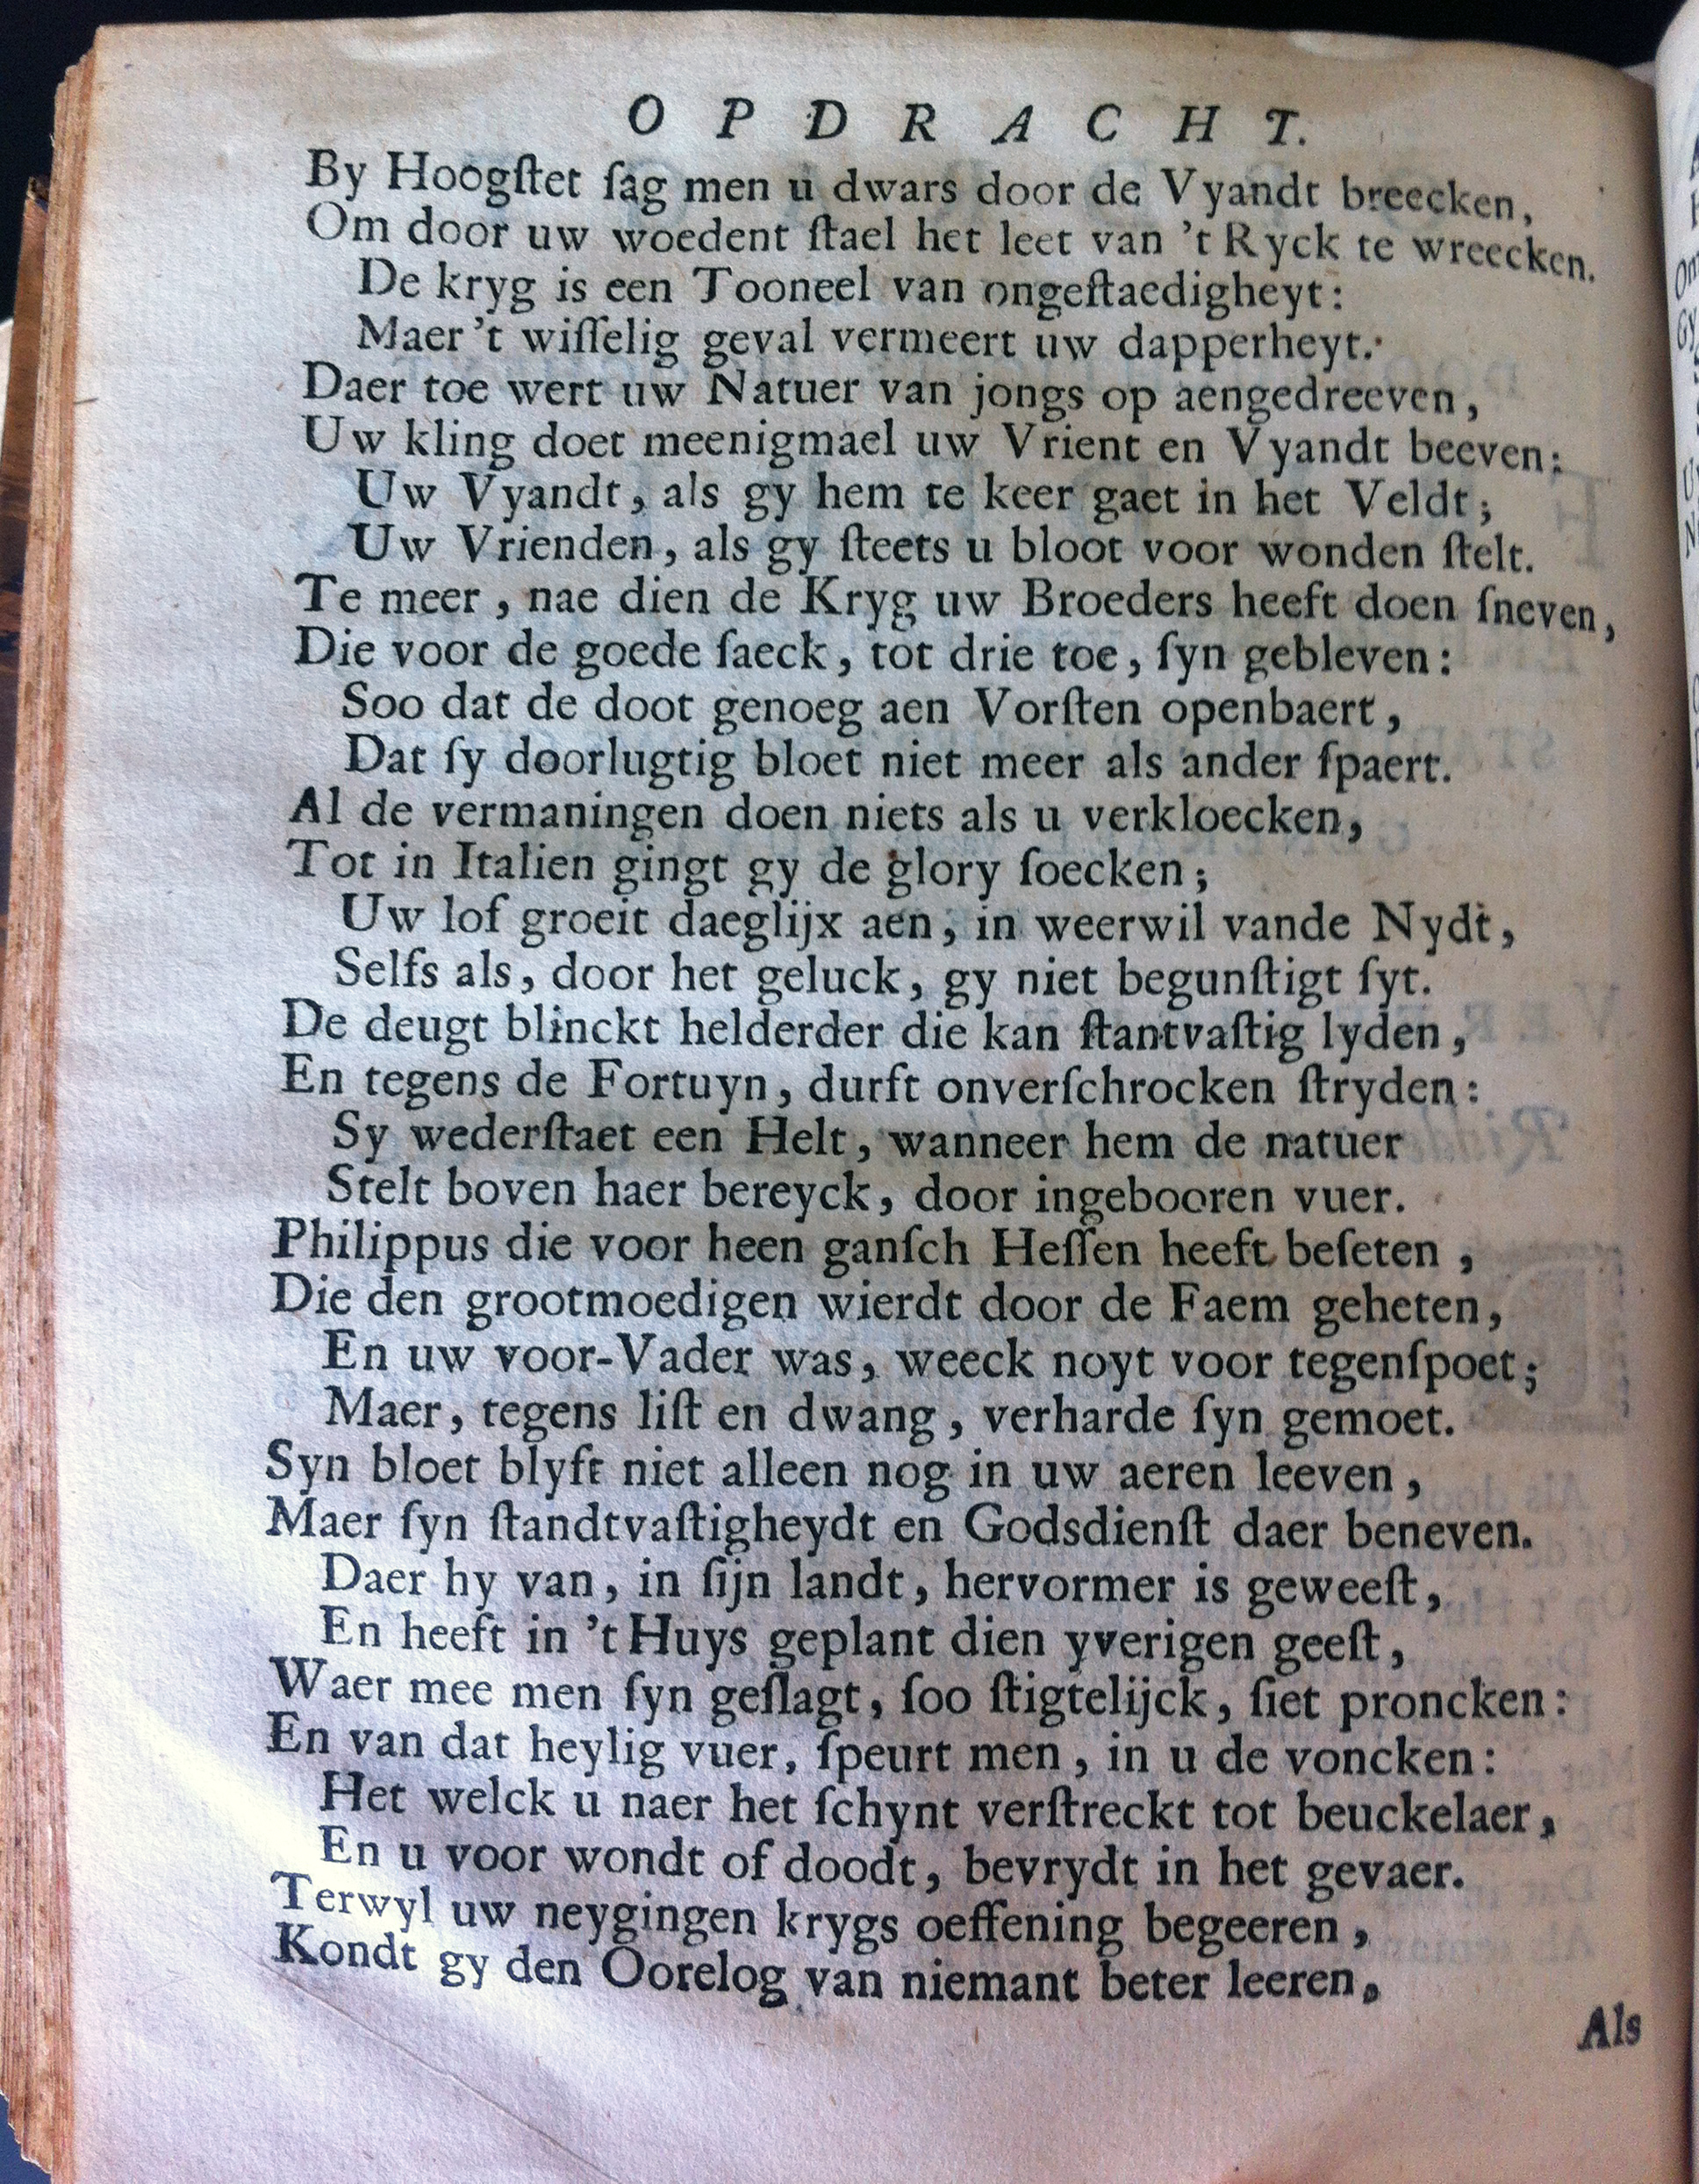 OPDRACHT.
By Hoogſtet ſag men u dwars door de Vyandt breecken,
Om door uw woedent ſtael het leet van 't Ryck te wreecken.
De kryg is een Tooneel van ongeſtaedigheyt:
Maer 't wiſſelig geval vermeert uw dapperheyt.
Daer toe wert uw Natuer van jongs op aengedreeven,
Uw kling doet meenigmael uw Vrient en Vyandt beeven:
Uw Vyandt, als gy hem te keer gaet in het Veldt;
Uw Vrienden, als gy ſteets u bloot voor wonden ſtelt.
Te meer, nae dien de Kryg uw Broeders heeft doen ſneven,
Die voor de goede ſaeck, tot drie toe, ſyn gebleven:
Soo dat de doot genoeg aen Vorſten openbaert,
Dat ſy doorlugtig bloet niet meer als ander ſpaert.
Al de vermaningen doen niets als u verkloecken,
Tot in Italien gingt gy de glory ſoecken;
Uw lof groeit daeglijx aen, in weerwil vande Nydt,
Selfs als, door het geluck, gy niet begunſtigt ſyt.
De deugt blinckt helderder die kan ſtantvaſtig lyden,
En tegens de Fortuyn, durft onverſchrocken ſtryden:
Sy wederſtaet een Helt, wanneer hem de natuer
Stelt boven haer bereyck, door ingebooren vuer.
Philippus die voor heen ganſch Heſſen heeft beſeten,
Die den grootmoedigen wierdt door de Faem geheten,
En uw voor-Vader was, weeck noyt voor tegenſpoet;
Maer, tegens liſt en dwang, verharde ſyn gemoet.
Syn bloet blyft niet alleen nog in uw aeren leeven,
Maer ſyn ſtandtvaſtigheydt en Godsdienſt daer beneven.
Daer hy van, in ſijn landt, hervormer is geweeſt,
En heeft in 't Huys geplant dien yverigen geeſt,
Waer mee men ſyn geſlagt, ſoo ſtigtelijck, ſiet proncken:
En van dat heylig vuer, ſpeurt men, in u de voncken:
Het welck u naer het ſchynt verſtreckt tot beuckelaer,
En u voor wondt of doodt, bevrydt in het gevaer.
Terwyl uw neygingen krygs oeffening begeeren,
Kondt gy den Oorelog van niemant beter leeren,
Als